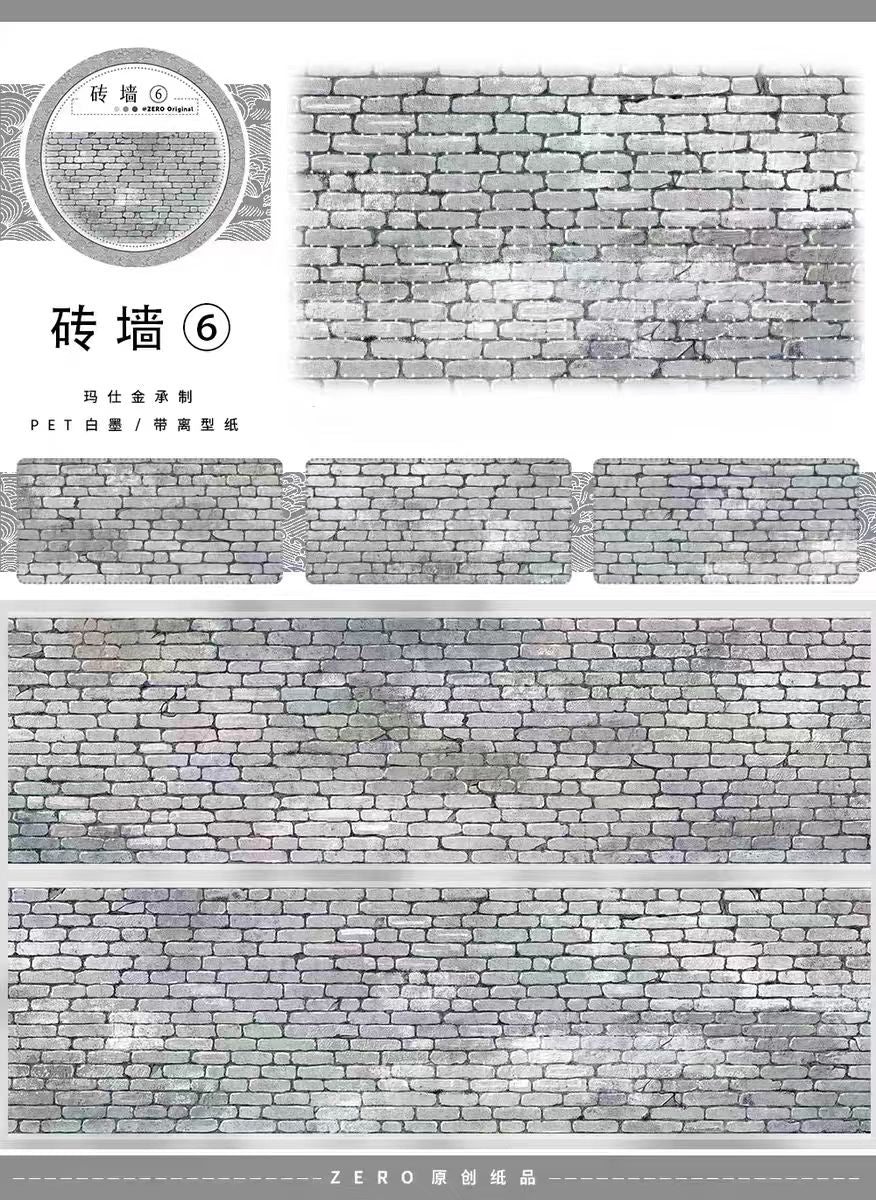 砖墙⑥
#ZERO Original
砖墙⑥
玛仕金承制
PET白墨/带离型纸
ZERO原创纸品